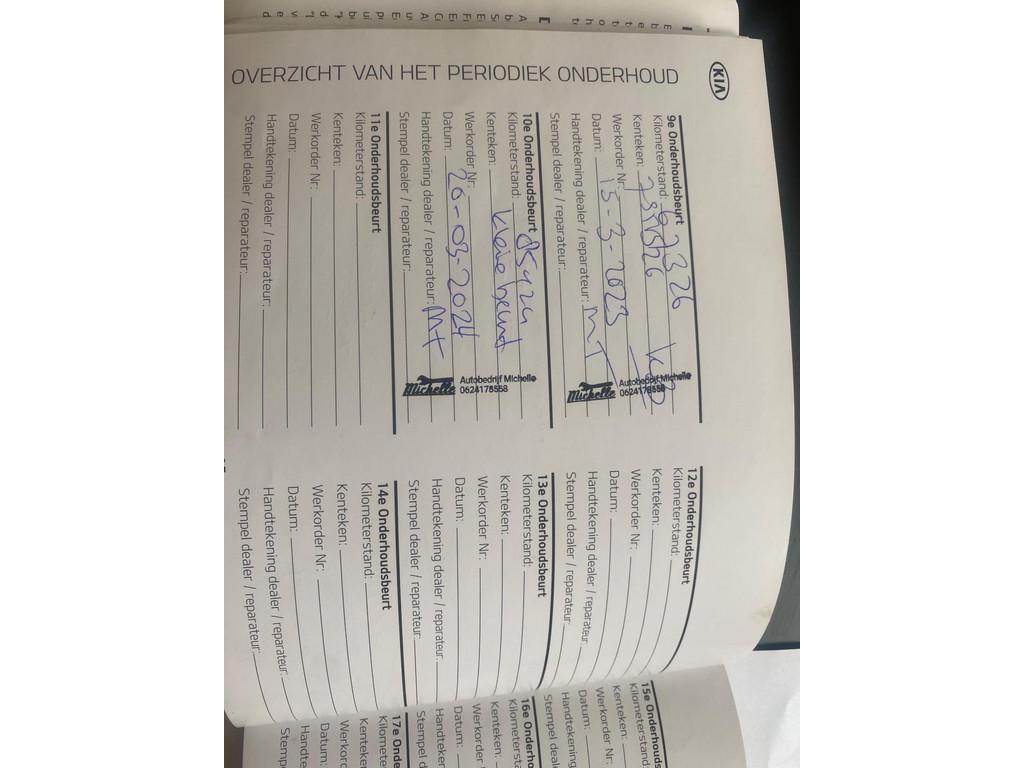 KIA
OVERZICHT VAN HET PERIODIEK ONDERHOUD
9e Onderhoudsbeurt
Kilometerstand: 62326
Kenteken:
Werkorder Nr:
Datum: 15-3-2023
Handtekening dealer / reparateur: MT
Stempel dealer / reparateur:
Autobedrijf Michelle
0624178558
Michelle
10e Onderhoudsbeurt
Kilometerstand:
Kenteken: kleine beurt
Werkorder Nr:
Datum: 20-03-2024
Handtekening dealer / reparateur: MT
Stempel dealer / reparateur:
Autobedrijf Michelle
0624178558
Michelle
11e Onderhoudsbeurt
Kilometerstand:
Kenteken:
Werkorder Nr:
Datum:
Handtekening dealer / reparateur:
Stempel dealer / reparateur:
12e Onderhoudsbeurt
Kilometerstand:
Kenteken:
Werkorder Nr:
Datum:
Handtekening dealer / reparateur:
Stempel dealer / reparateur:
13e Onderhoudsbeurt
Kilometerstand:
Kenteken:
Werkorder Nr:
Datum:
Handtekening dealer / reparateur:
Stempel dealer / reparateur:
14e Onderhoudsbeurt
Kilometerstand:
Kenteken:
Werkorder Nr:
Datum:
Handtekening dealer / reparateur:
Stempel dealer / reparateur:
15e Onderhouds
Kilometerstand:
Kenteken:
Werkorder Nr:
Datum:
Handtekening
Stempel deal
16e Onderho
Kilometersta
Kenteken:
Werkorder N
Datum:
Handteker
Stempel d
17e Onde
Kilomete
Kenteken
Werkord
Datum:
Handt
Stemp